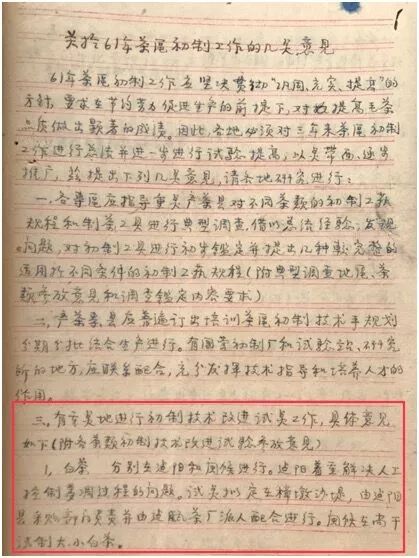 1
关于61年茶区初制工作的几点意见
61年茶区初制工作应坚决贯彻“巩固、充实、提高”的
方针，要求在节约劳力促进生产的前提下，对提高毛茶
品质做出显著的成绩。因此，各地必须对三年来茶区初制
工作进行总结并进一步进行试验提高，以点带面，逐步
推广，兹提出下列几点意见，请各地研究进行：
一、各茶区应指导重点产茶县对不同茶类的初制工艺
规程和制茶工具进行典型调查，借以总结经验，发现
问题，对初制工具进行初步鉴定并提出几种较完整的
适用于不同条件的初制工艺规程（附典型调查地区、茶
类参放意见和调查鉴定内容要求）
二、产茶县应普遍订出培训茶区初制技术手规划
分期分批结合生产进行。有国营初制厂和试验站、研究
所的地方，应联系配合，充分发挥技术指导和培养人才的
作用。
三、有重点地进行初制技术改进试点工作，具体意见
如下（附各茶类初制技术改进试验参放意见）
1，白茶 分别在政和和闽侯进行。着重解决人工
控制萎凋过程的问题。试点拟定在
县采购部门负责并由茶厂派人配合进行。闽侯在高干
试制大小白茶。